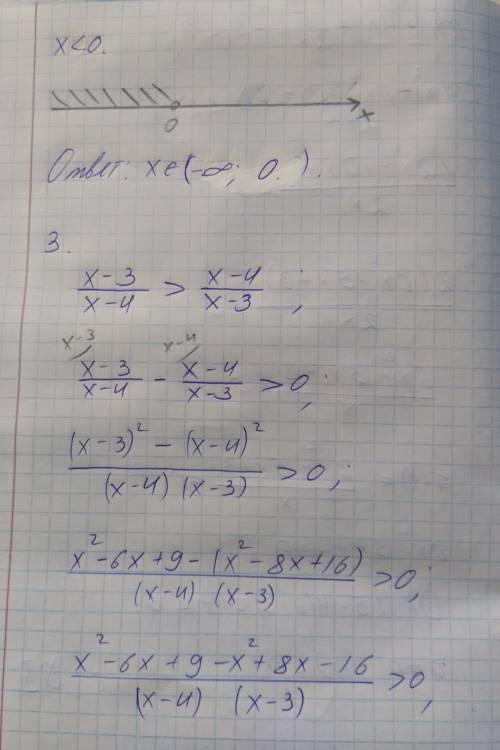 x<0.
0 x
Ответ: x∈(-∞; 0.).
3.
(x-3)/(x-4) > (x-4)/(x-3) ;
x-3 x-4
(x-3)/(x-4) - (x-4)/(x-3) >0;
((x-3)² - (x-4)²)/((x-4) (x-3)) >0;
(x²-6x+9-(x²-8x+16))/((x-4) (x-3)) >0;
(x²-6x+9-x²+8x-16)/((x-4) (x-3)) >0;